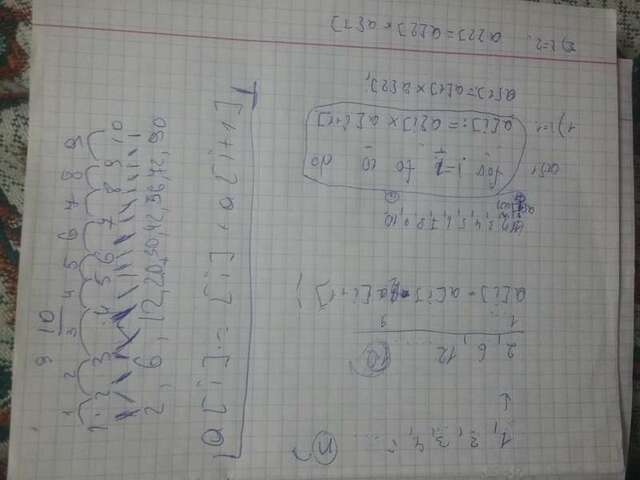 1, 2, 3, 4, 5 ... n
↓
2, 6, 12 ... 10
1 ... 9
a[i] = a[i] a[i+1]
1, 2, 3, 4, 5, 6, 7, 8, 9, 10
for i:=1 to 10 do
1) i=1. a[i]:= a[i] × a[i+1]
a[1]:= a[1] × a[2];
2) i=2. a[2]:= a[2] × a[3]
9 10
1 2 3 4 5 6 7 8 9
1 2 3 4 5 6 7 8 9 10
2, 6, 12, 20, 30, 42, 56, 72, 90
a[i]:= a[i] * a[i+1]